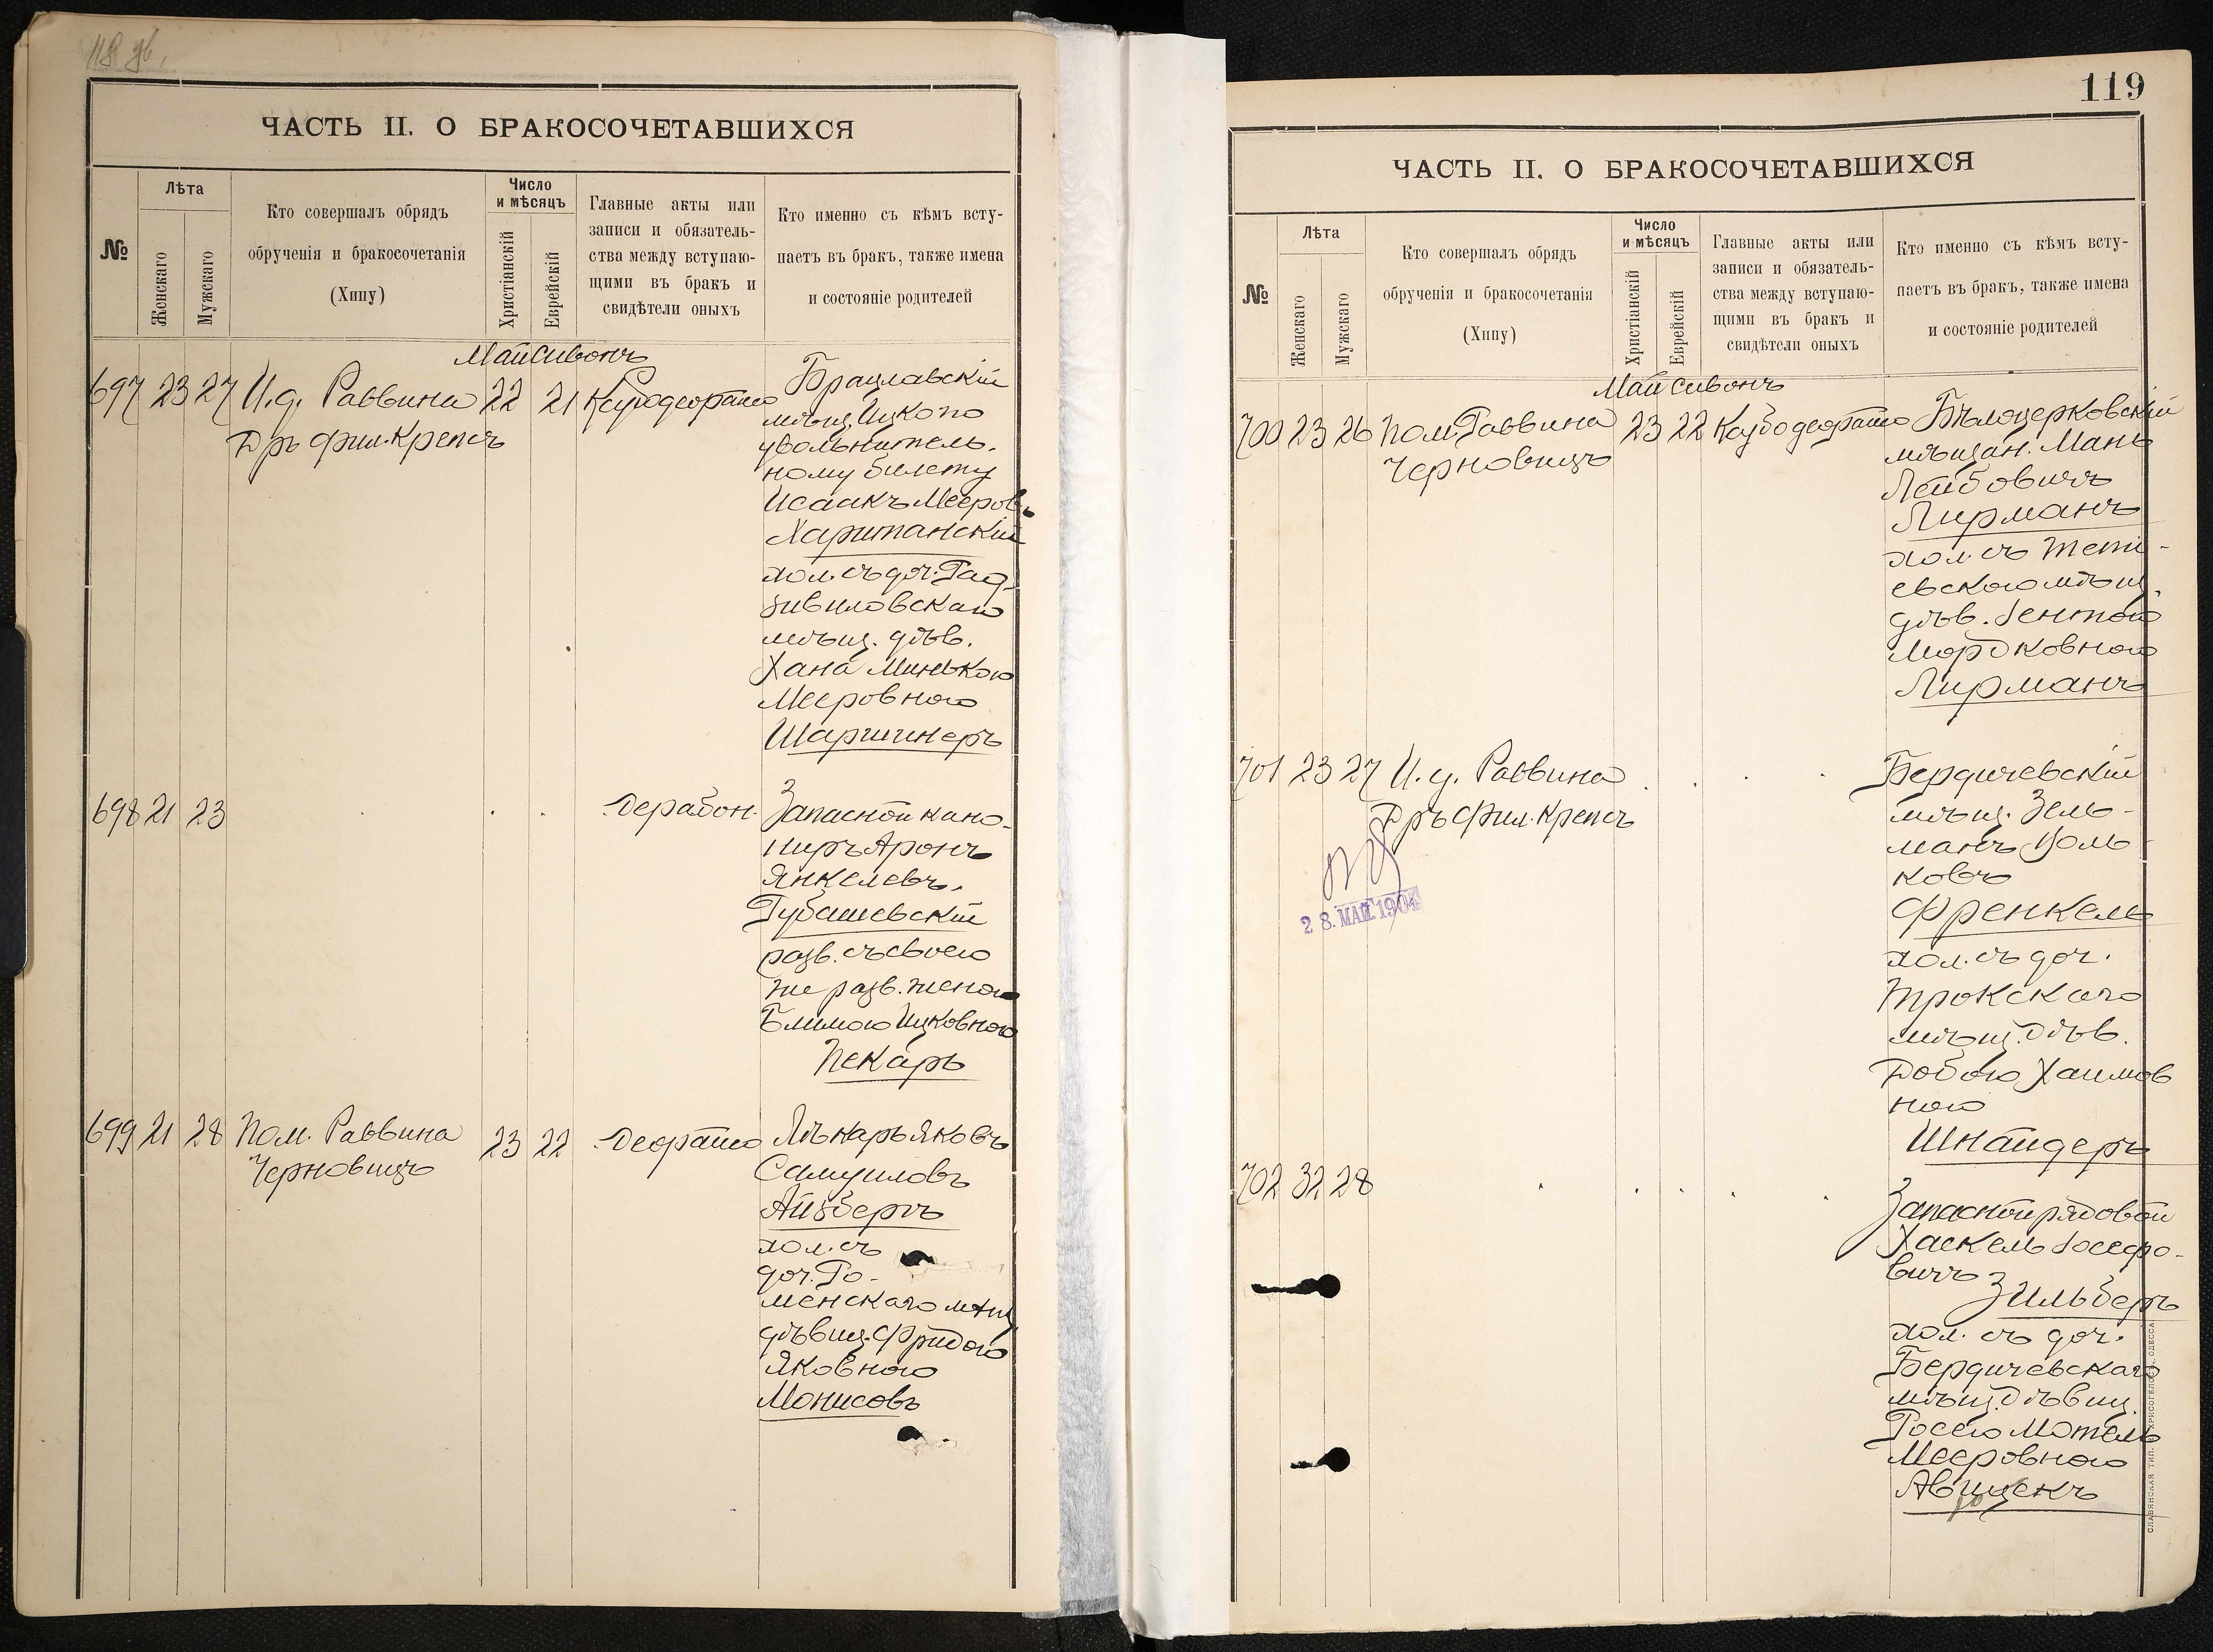 118 об.
ЧАСТЬ II. О БРАКОСОЧЕТАВШИХСЯ
№
Лѣта
Женскаго
Мужскаго
Кто совершалъ обрядъ
обрученія и бракосочетанія
(Хипу)
Число
и мѣсяцъ
Христіанскій
Еврейскій
Главные акты или
записи и обязатель-
ства между вступаю-
щими въ бракъ и
свидѣтели оныхъ
Кто именно съ кѣмъ всту-
паетъ въ бракъ, также имена
и состояніе родителей
Май Сивонъ
697 23 27 И.д. Раввина 22 21
Дръ фил. Крепсъ
Брацлавскій
мѣщ. Ицко по
увольнитель-
ному билету
Исаакъ Мееровъ
Хаританскій
хол. съ доч. Рад-
зивиловскаго
мѣщ. дѣв.
Хана Минькою
Мееровною
Шаргинеръ
698 21 23
Запасной кано-
ниръ Аронъ
Янкелевъ
Губашевскій
разв. съ своею
же разв. женою
Блимою Ицковною
Пекарь
699 21 28 Пом. Раввина 23 22
Черновицъ
Лѣкарь Яковъ
Самуиловъ
Айзбергъ
хол. съ
доч. Ро-
менскаго мѣщ.
дѣвиц. Фридою
Яковною
Монисовъ
119
ЧАСТЬ II. О БРАКОСОЧЕТАВШИХСЯ
№
Лѣта
Женскаго
Мужскаго
Кто совершалъ обрядъ
обрученія и бракосочетанія
(Хипу)
Число
и мѣсяцъ
Христіанскій
Еврейскій
Главные акты или
записи и обязатель-
ства между вступаю-
щими въ бракъ и
свидѣтели оныхъ
Кто именно съ кѣмъ всту-
паетъ въ бракъ, также имена
и состояніе родителей
Май Сивонъ
700 23 26 Пом. Раввина 23 22
Черновицъ
Бѣлоцерковскій
мѣщан. Мань
Лейбовичъ
Лирманъ
хол. съ Тети-
евскою мѣщ.
дѣв. Гентою
Мордковною
Лирманъ
701 23 27 И.д. Раввина
Дръ фил. Крепсъ
28. МАЙ 1904
Бердичевскій
мѣщ. Зель-
манъ Воль-
ковъ
Френкель
хол. съ доч.
Трокскаго
мѣщ. дѣв.
Добою Хаимов
ною
Шнайдеръ
702 32 28
Запасной рядовой
Хаскель Іосефо-
вичъ
Зильберъ
хол. съ доч.
Бердичевскаго
мѣщ. дѣвиц.
Росею Мотель
Мееровною
СЛАВЯНСКАЯ ТИП. Е. ХРИСОГЕЛОСЪ, ОДЕССА